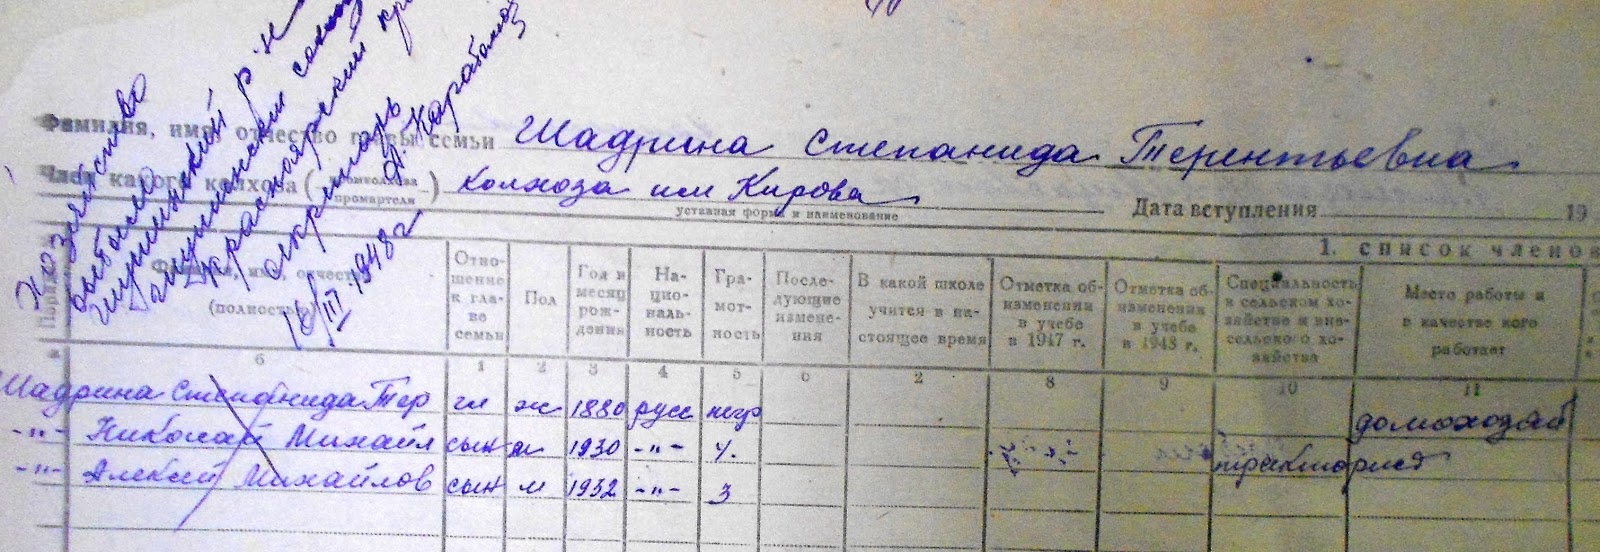 Хозяйство
выбыло
р-н
Красноярский
секретарь
16/III 1948 г
Фамилия, имя, отчество главы семьи Шадрина Степанида Терентьевна
Член какого колхоза (промколхоза промартели) Колхоза им Кирова
уставная форма и наименование
Дата вступления 19
1. список членов
Фамилия, имя, отчество (полностью)
Отношение к главе семьи
Пол
Год и месяц рождения
Национальность
Грамотность
Последующие изменения
В какой школе учится в настоящее время
Отметка об изменении в учебе в 1947 г.
Отметка об изменении в учебе в 1948 г.
Специальность в сельском хозяйстве и вне сельского хозяйства
Место работы и в качестве кого работает
а б 1 2 3 4 5 6 2 8 9 10 11
Шадрина Степанида Тер гл ж 1880 русс негр домохозяй
-"- Николай Михайл сын м 1930 -"- 4. тракторист
-"- Алексей Михайлов сын м 1932 -"- 3